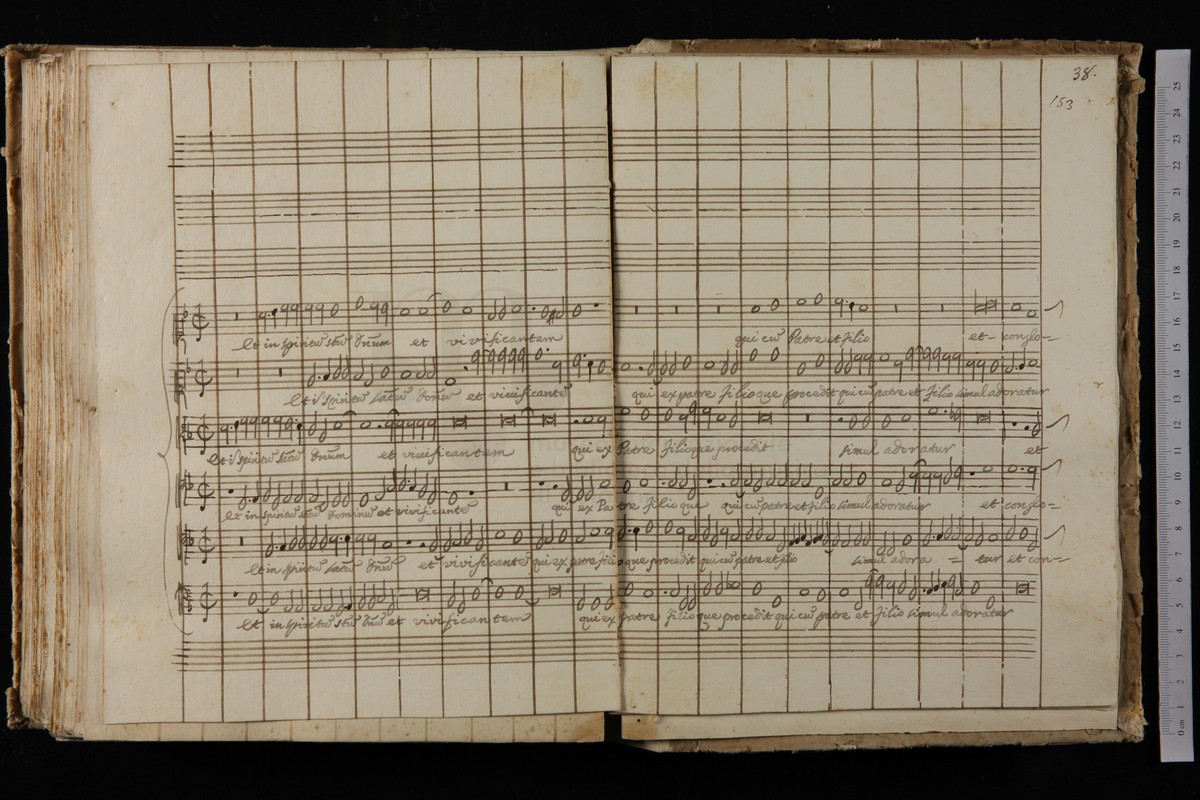 38.
153
Et in spiritũ stũ dnum et vivificantem qui cũ Patre et filio et conglo-
Et ĩ spiritũ satũ domũ et vivificantẽ qui ex patre filioque procedit qui cũ patre et filio simul adoratur
Et ĩ spiritũ stũ dnum et vivificantem qui ex Patre filioque procedit simul adoratur et
Et in spiritũ stũ dominũ et vivificantẽ qui ex Patre filioque qui cũ patre et filio simul adoratur et conglo-
Et in spiritũ satũ dnũ et vivificantẽ qui ex patre filioque procedit qui cũ patre et filio simul adora = tur et con-
Et in spiritũ stũ dnũ et vivificantem qui ex patre filioque procedit qui cũ patre et filio simul adoratur